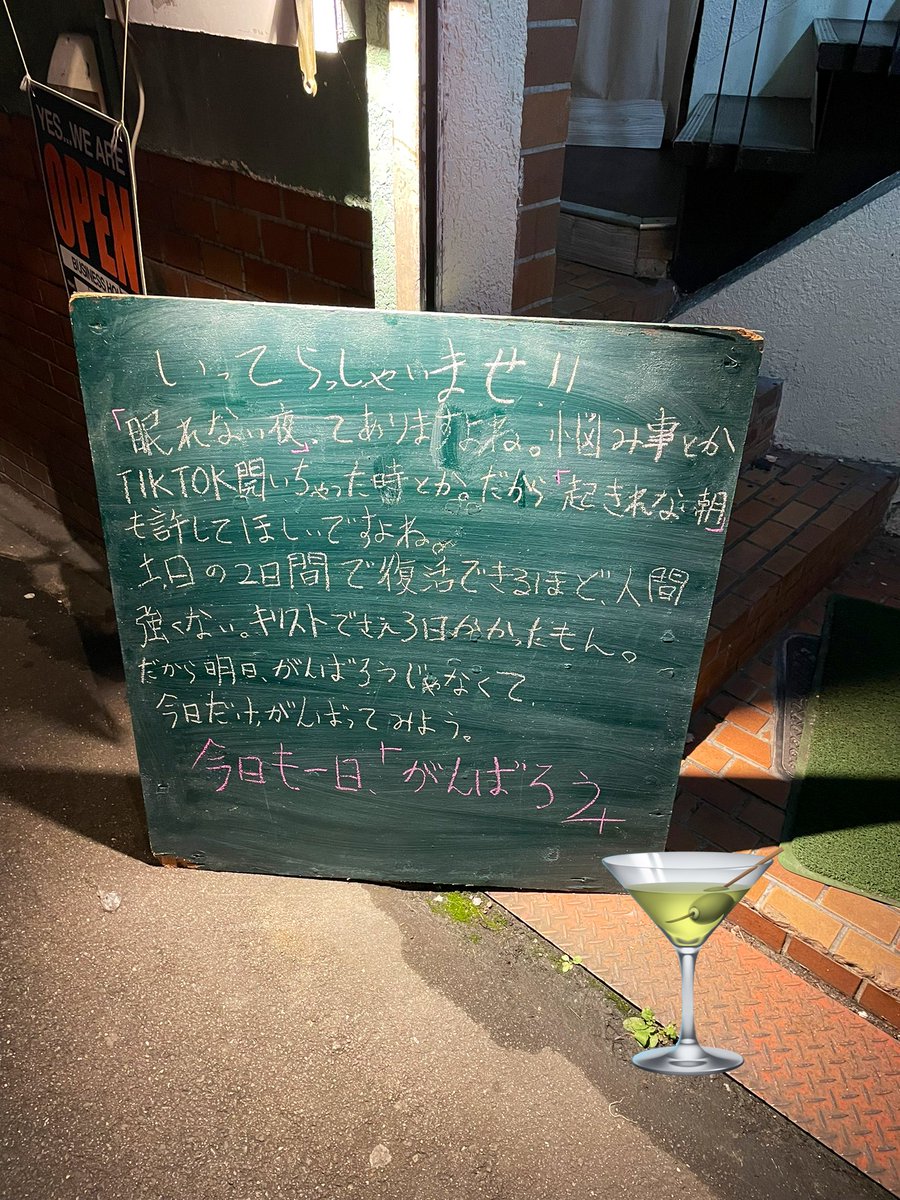 YES...WE ARE
OPEN
BUSINESS HOU
いってらっしゃいませ!!
「眠れない夜」ってありますよね。悩み事とか
TIKTOK開いちゃった時とか。だから「起きれない朝」
も許してほしいですよね。
土日の2日間で復活できるほど、人間
強くない。キリストでさえ3日かかったもん。
だから明日、がんばろうじゃなくて、
今日だけ、がんばってみよう。
今日も一日、がんばろう